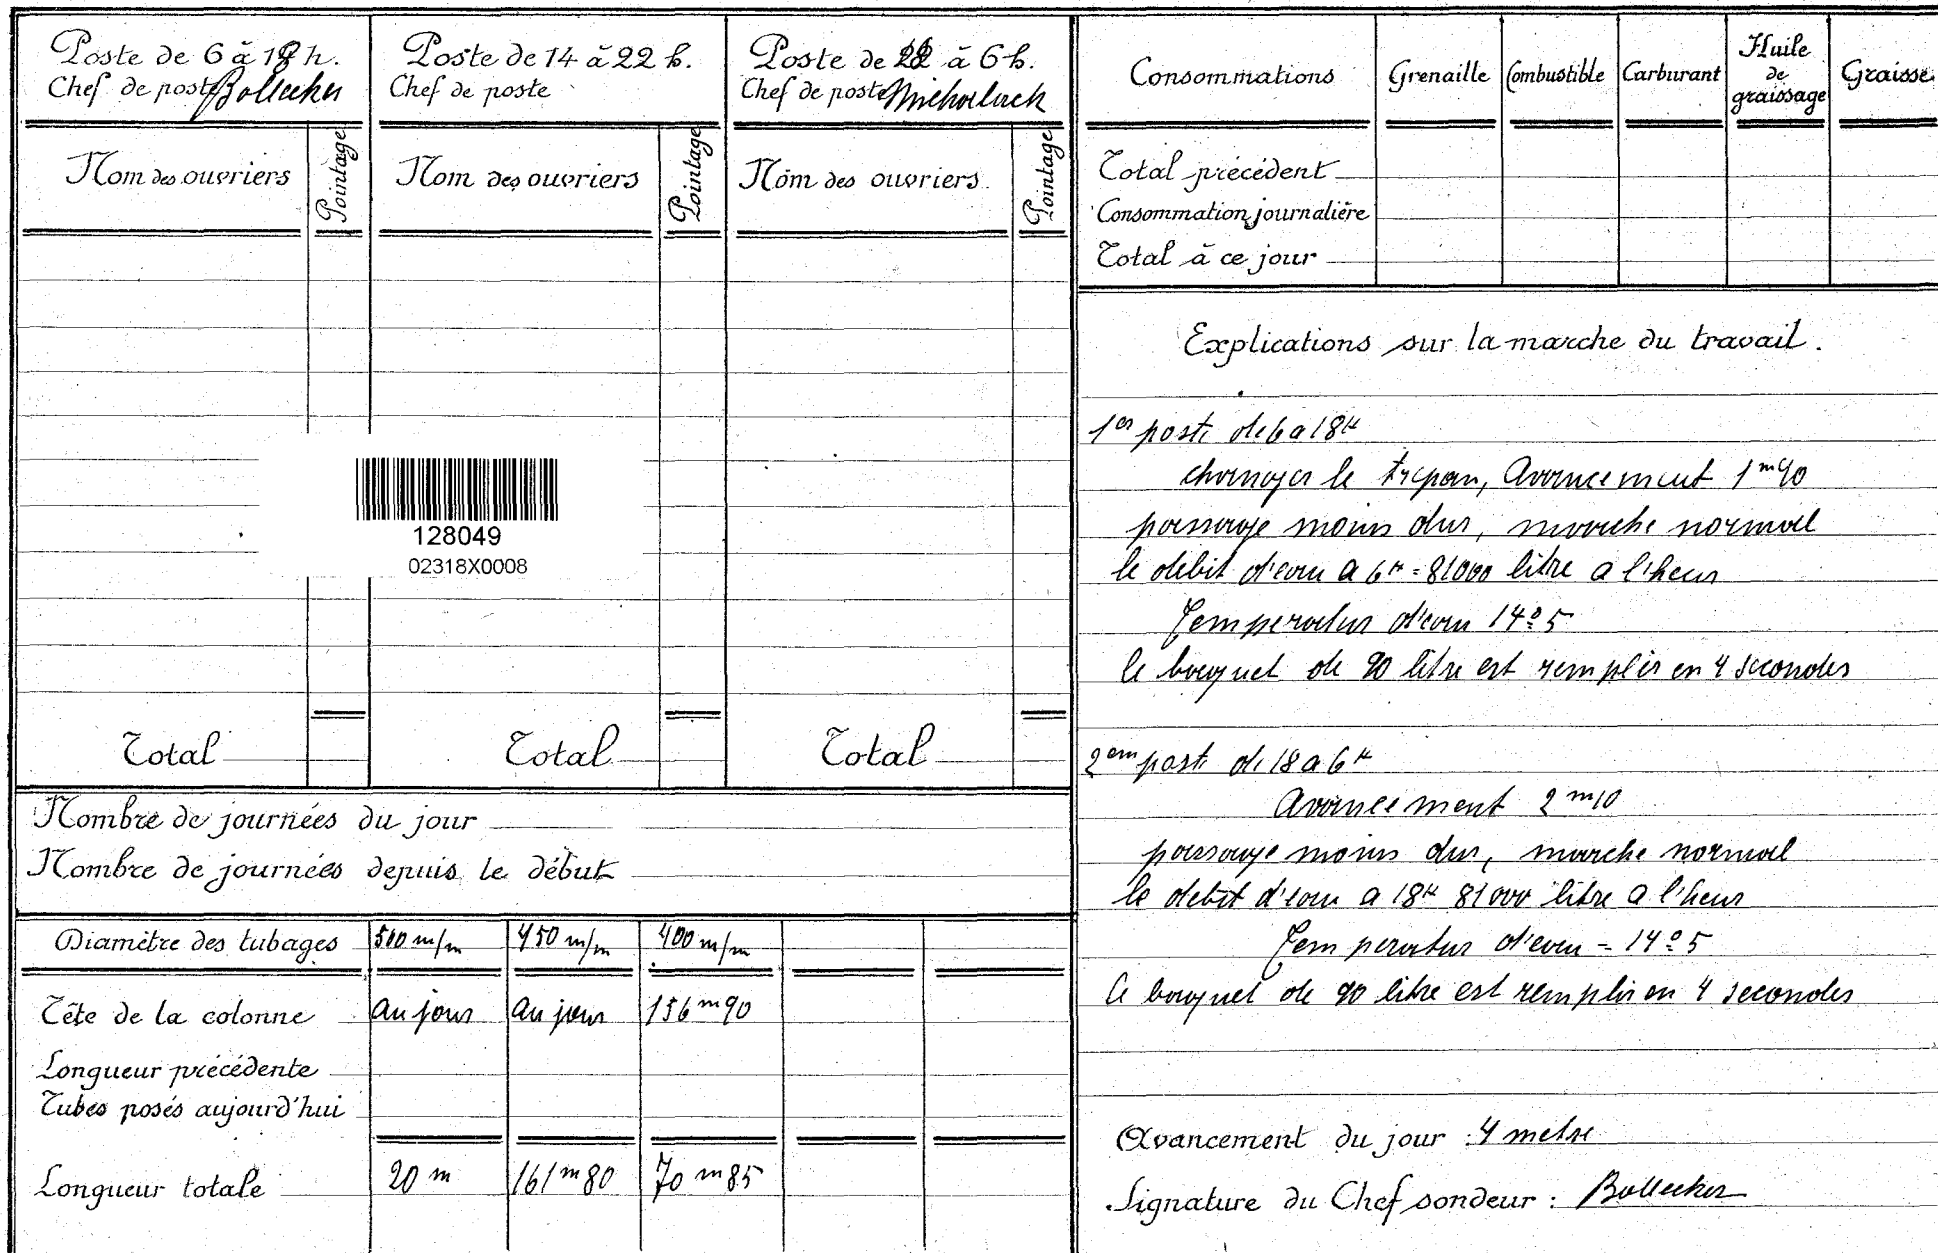 Poste de 6 à 18 h.
Chef de poste Bollecker
Poste de 14 à 22 h.
Chef de poste
Poste de 18 à 6 h.
Chef de poste
Nom des ouvriers
Pointage
Nom des ouvriers
Pointage
Nom des ouvriers
Pointage
128049
02318X0008
Total
Total
Total
Nombre de journées du jour
Nombre de journées depuis le début
Diamètre des tubages 500 m/m 450 m/m 400 m/m
Tête de la colonne au jour au jour 156 m 90
Longueur précédente
Tubes posés aujourd'hui
Longueur totale 20 m 161 m 80 70 m 85
Consommations Grenaille Combustible Carburant Huile de graissage Graisse
Total précédent
Consommation journalière
Total à ce jour
Explications sur la marche du travail.
1er poste de 6 a 18 H
changer le trepan, Avancement 1 m 90
passage moins dur, marche normal
le debit d'eau a 6 H = 81000 litre a l'heur
Temperatur d'eau 14° 5
le baquet de 90 litre est remplir en 4 secondes
2em poste de 18 a 6 H
Avancement 2 m 10
passage moins dur, marche normal
le debit d'eau a 18 H 81000 litre a l'heur
Temperatur d'eau = 14° 5
le baquet de 90 litre est remplir en 4 secondes
Avancement du jour : 4 metre
Signature du Chef sondeur : Bollecker